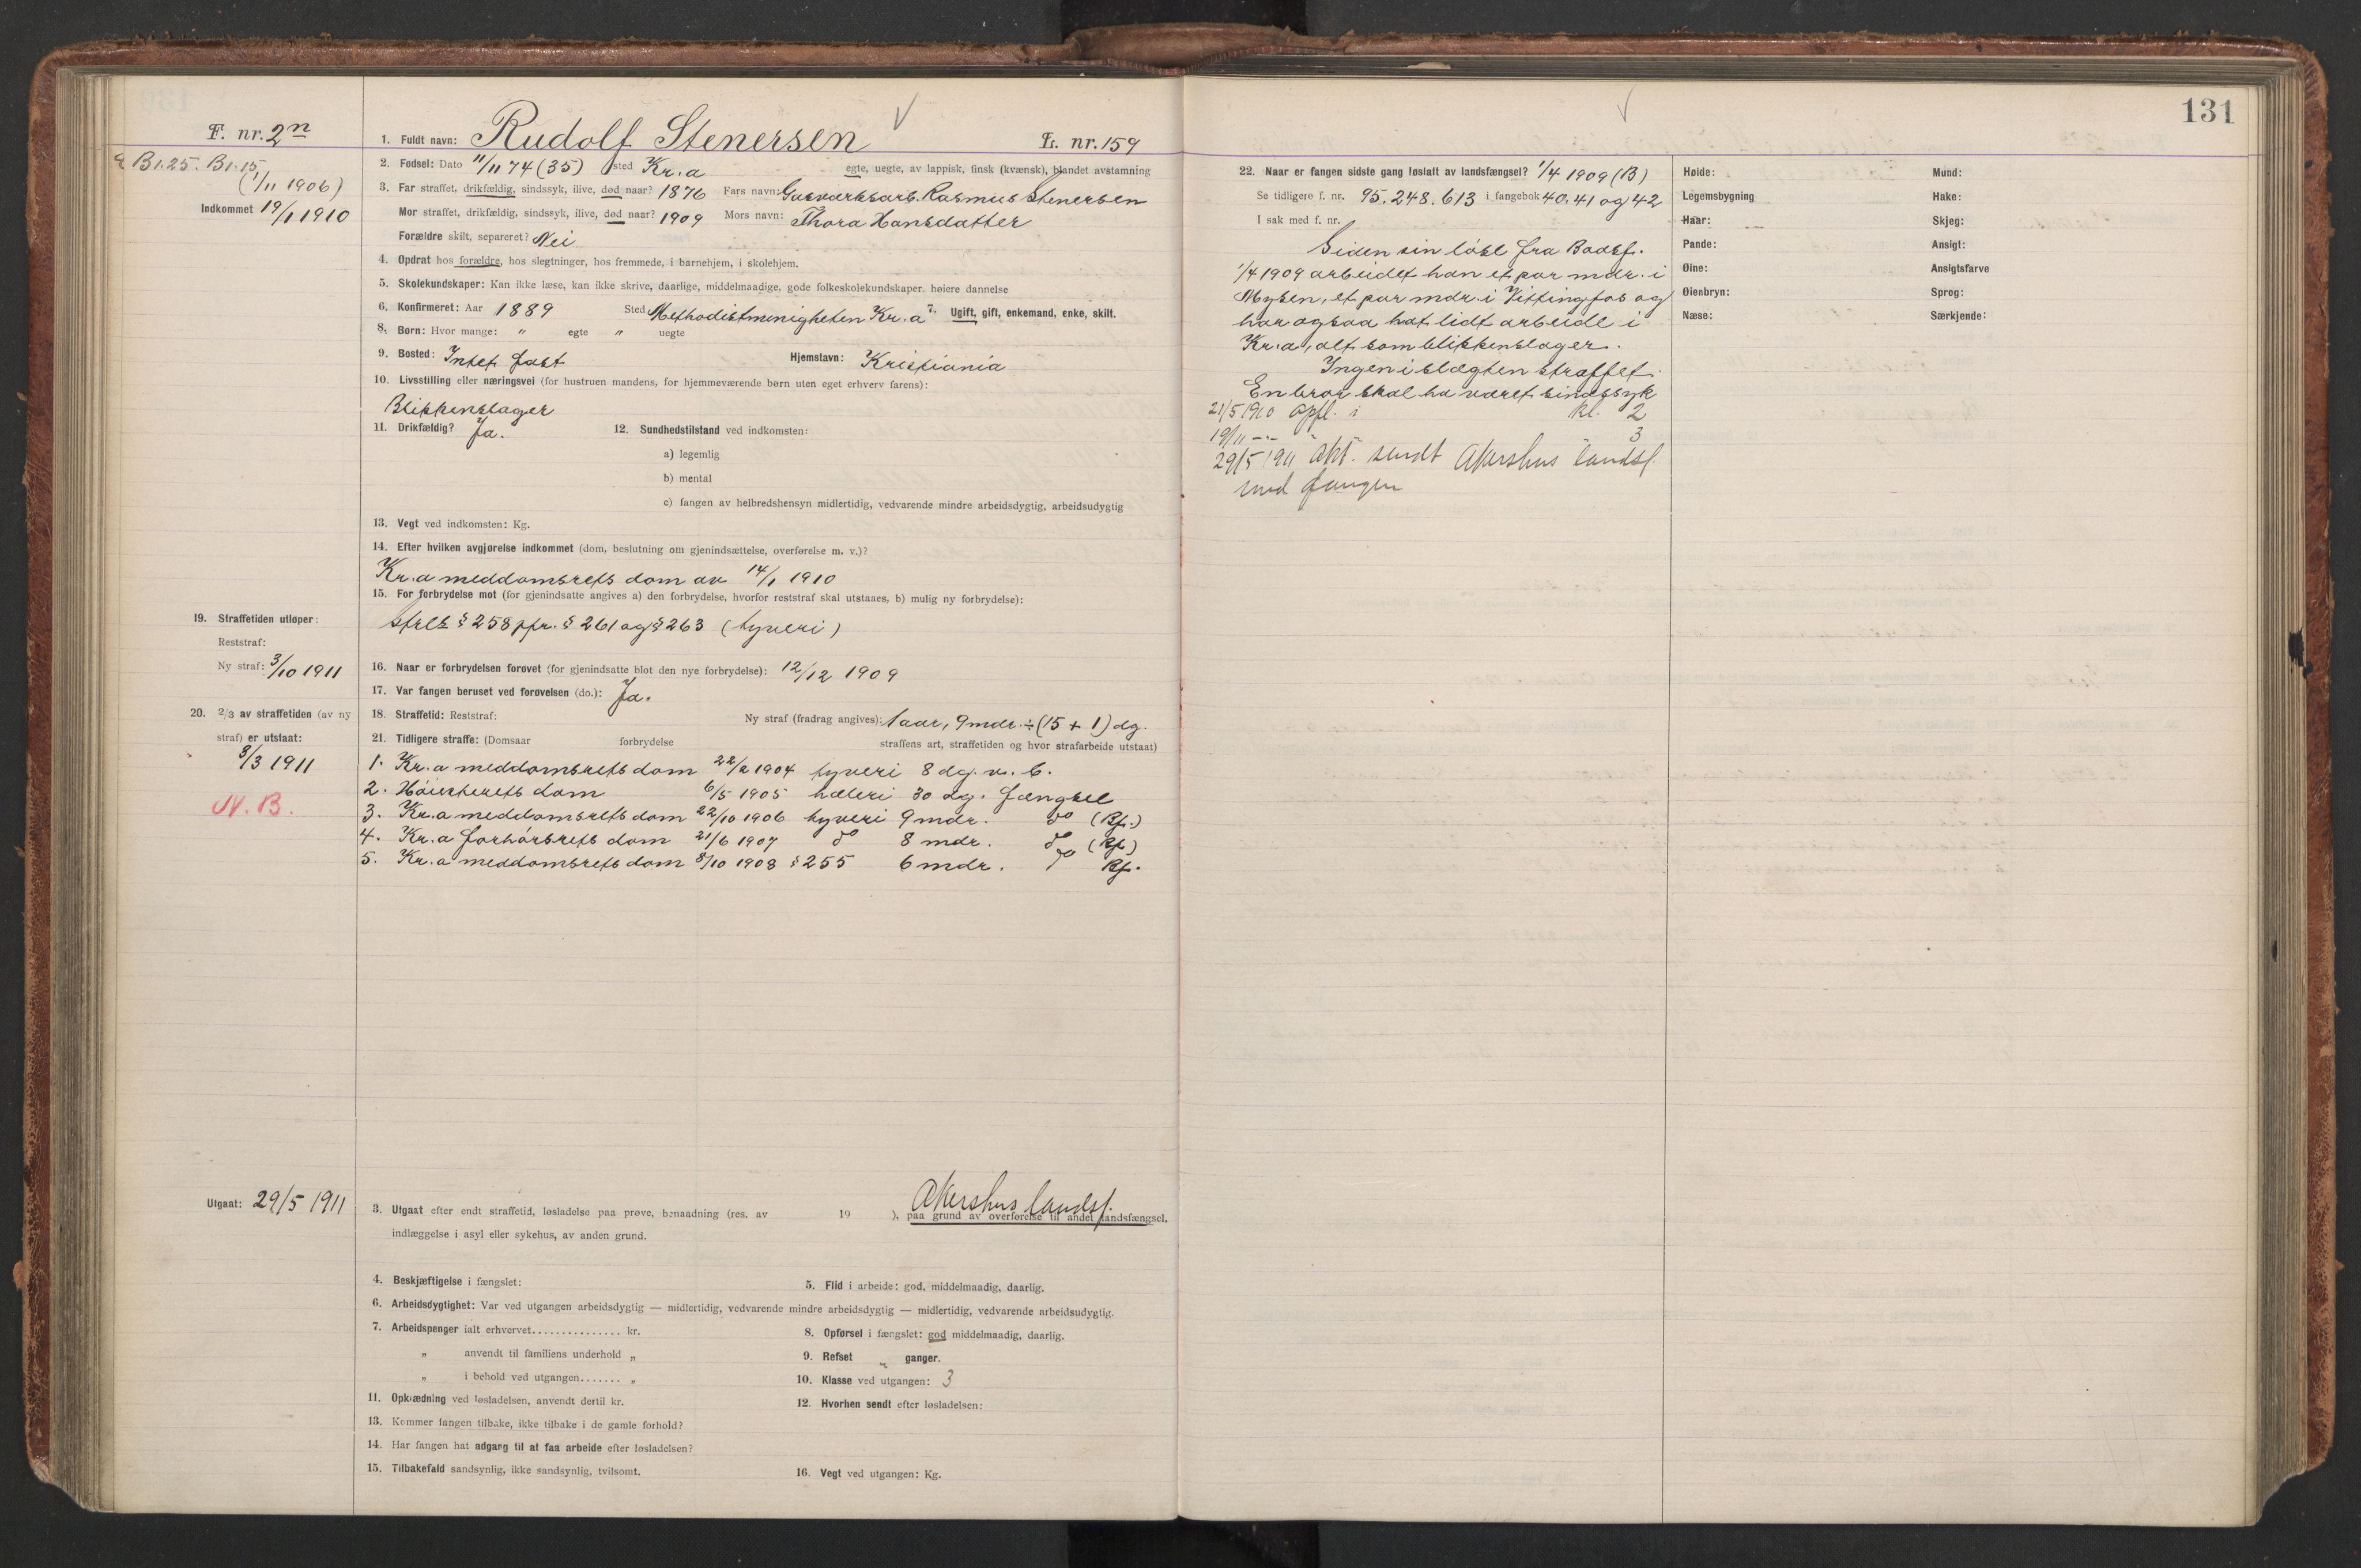 F. nr. 2n
Br. 25. Br. 15
(1/11 1906)
Indkommet 19/1 1910
1. Fuldt navn: Rudolf Stenersen L. nr. 159
2. Fødsel: Dato 11/11 74 (35) sted Kr.a egte, uegte, av lappisk, finsk (kvænsk), blandet avstamning
3. Far straffet, drikfældig, sindssyk, ilive, død naar? 1876 Fars navn: Gasværksarb. Rasmus Stenersen
Mor straffet, drikfældig, sindssyk, ilive, død naar? 1909 Mors navn: Thora Hansdatter
Forældre skilt, separeret? Nei
4. Opdrat hos forældre, hos slegtninger, hos fremmede, i barnehjem, i skolehjem.
5. Skolekundskaper: Kan ikke læse, kan ikke skrive, daarlige, middelmaadige, gode folkeskolekundskaper. høiere dannelse
6. Konfirmeret: Aar 1889 Sted Methodistmenigheten Kr.a 7. Ugift, gift, enkemand, enke, skilt.
8. Børn: Hvor mange: " egte " uegte
9. Bosted: Intet fast Hjemstavn: Kristiania
10. Livsstilling eller næringsvei (for hustruen mandens, for hjemmeværende børn uten eget erhverv farens):
Blikkenslager
11. Drikfældig? Ja. 12. Sundhedstilstand ved indkomsten:
a) legemlig
b) mental
c) fangen av helbredshensyn midlertidig, vedvarende mindre arbeidsdygtig, arbeidsudygtig
13. Vegt ved indkomsten: Kg.
14. Efter hvilken avgjørelse indkommet (dom, beslutning om gjenindsættelse, overførelse m. v.)?
Kr.a meddomsrets dom av 14/1 1910
15. For forbrydelse mot (for gjenindsatte angives a) den forbrydelse, hvorfor reststraf skal utstaaes, b) mulig ny forbrydelse):
strls § 258 jfr. § 261 og § 263 (tyveri)
19. Straffetiden utløper:
Reststraf:
Ny straf: 3/10 1911
16. Naar er forbrydelsen forøvet (for gjenindsatte blot den nye forbrydelse): 12/12 1909
17. Var fangen beruset ved forøvelsen (do.): Ja.
18. Straffetid: Reststraf: Ny straf (fradrag angives): 1 aar, 9 mdr. ÷ (15 + 1) dg.
20. 2/3 av straffetiden (av ny
straf) er utstaat:
3/3 1911
N. B.
21. Tidligere straffe: (Domsaar forbrydelse straffens art, straffetiden og hvor strafarbeide utstaat)
1. Kr.a meddomsrets dom 22/2 1904 tyveri 8 dg. v. b.
2. Høiesterets dom 6/5 1905 hæleri 30 dg. fængsel
3. Kr.a meddomsrets dom 22/10 1906 tyveri 9 mdr. do (Bf.)
4. Kr.a forhørsrets dom 21/6 1907 do 8 mdr. do (Bf.)
5. Kr.a meddomsrets dom 8/10 1908 § 255 6 mdr. do Bf.
Utgaat: 29/5 1911
Akershus landsf.
3. Utgaat efter endt straffetid, løsladelse paa prøve, benaadning (res. av 19 ), paa grund av overførelse til andet landsfængsel,
indlæggelse i asyl eller sykehus, av anden grund.
4. Beskjæftigelse i fængslet: 5. Flid i arbeide: god, middelmaadig, daarlig.
6. Arbeidsdygtighet: Var ved utgangen arbeidsdygtig — midlertidig, vedvarende mindre arbeidsdygtig — midlertidig, vedvarende arbeidsudygtig.
7. Arbeidspenger ialt erhvervet............... kr. 8. Opførsel i fængslet: god middelmaadig, daarlig.
" anvendt til familiens underhold " 9. Refset " ganger.
" i behold ved utgangen....... " 10. Klasse ved utgangen: 3
11. Opklædning ved løsladelsen, anvendt dertil kr. 12. Hvorhen sendt efter løsladelsen:
13. Kommer fangen tilbake, ikke tilbake i de gamle forhold?
14. Har fangen hat adgang til at faa arbeide efter løsladelsen?
15. Tilbakefald sandsynlig, ikke sandsynlig, tvilsomt. 16. Vegt ved utgangen: Kg.
131
22. Naar er fangen sidste gang løslatt av landsfængsel? 1/4 1909 (B)
Se tidligere f. nr. 95. 248. 613 i fangebok 40. 41 og 42
I sak med f. nr.
Siden sin løsl. fra Bodsf.
1/4 1909 arbeidet han et par mdr. i
Mysen, et par mdr. i Vittingfos og
har ogsaa hat lidt arbeide i
Kr.a, alt som blikkenslager.
Ingen i slægten straffet.
En bror skal ha været sindssyk
21/5 1910 opfl. i kl. 2
19/11 -"- " " 3
29/5 1911 akt. sendt Akershus landsf.
med fangen
Høide: Mund:
Legemsbygning Hake:
Haar: Skjeg:
Pande: Ansigt:
Øine: Ansigtsfarve
Øienbryn: Sprog:
Næse: Særkjende: